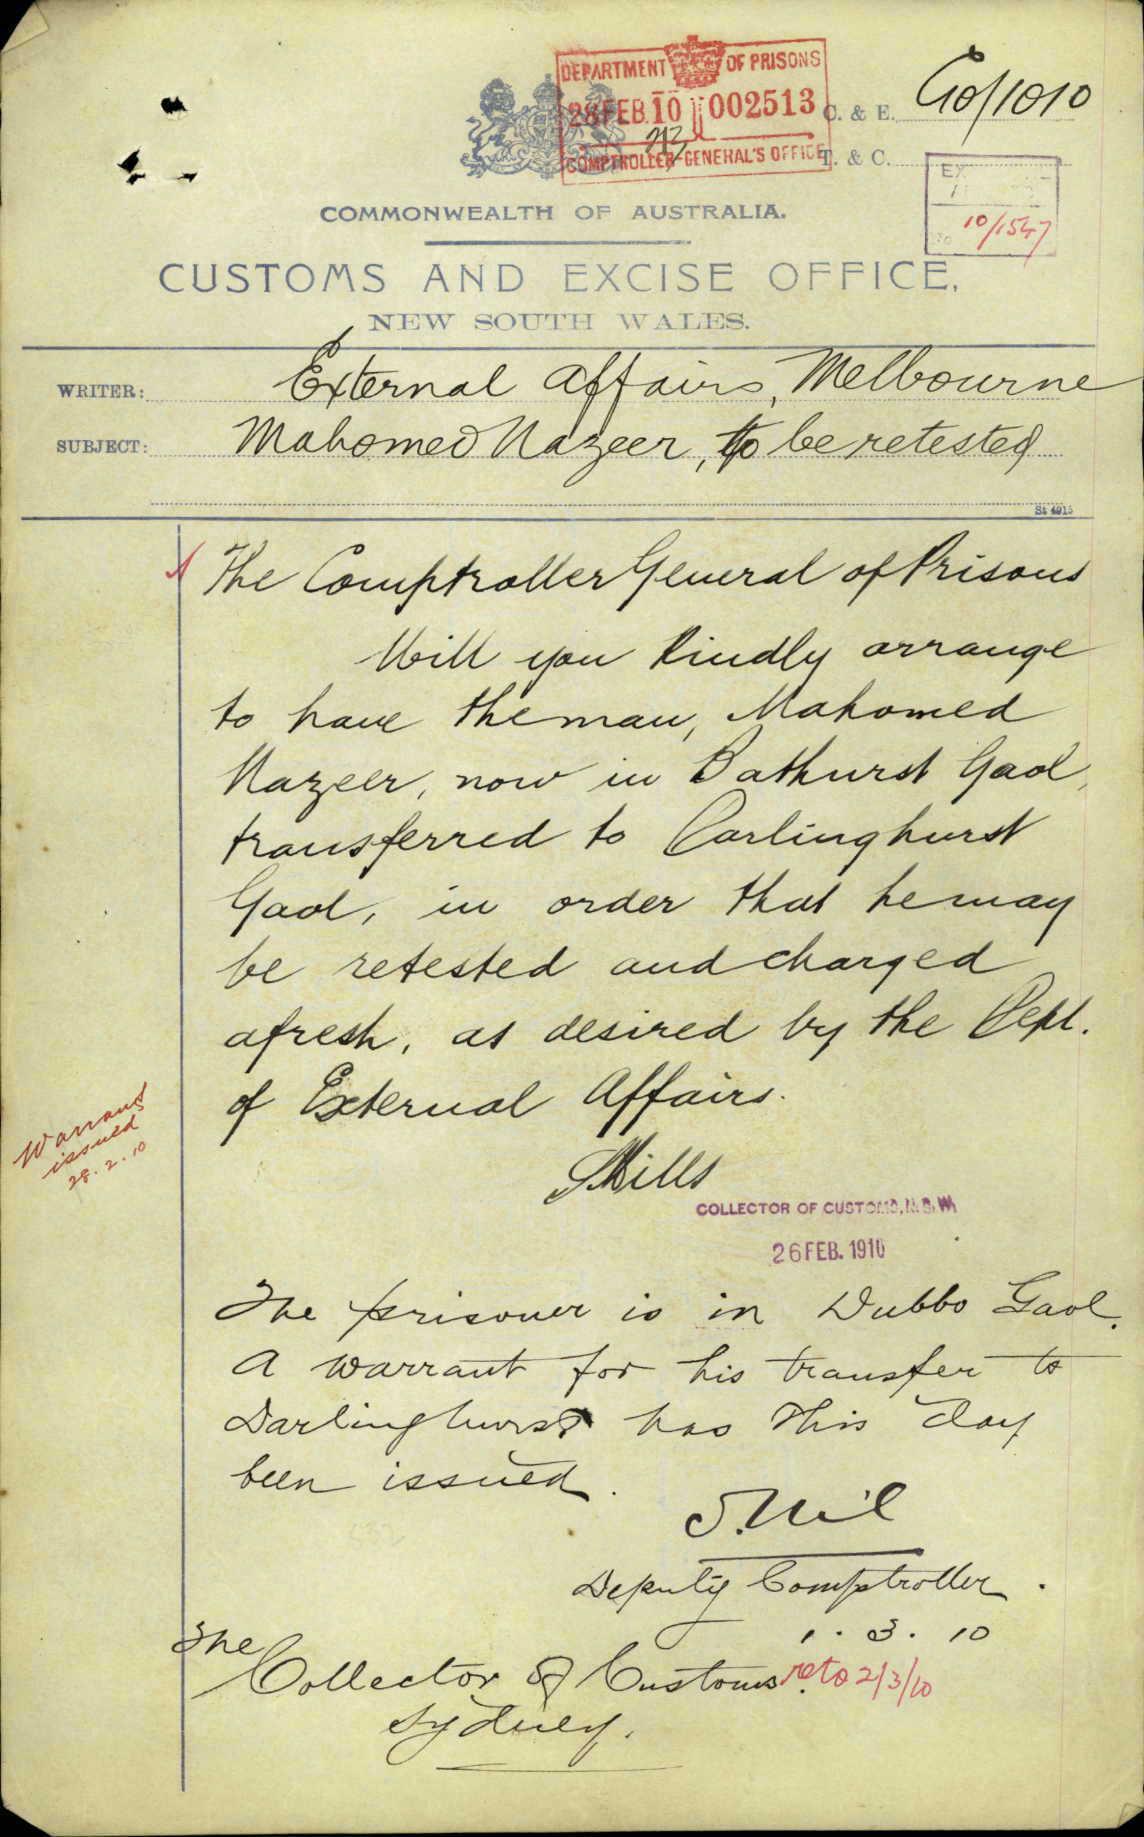 DEPARTMENT OF PRISONS
28 FEB. 10 002513
COMPTROLLER-GENERAL'S OFFICE
C. & E. G10/1010
T. & C.
10/1547
COMMONWEALTH OF AUSTRALIA.
CUSTOMS AND EXCISE OFFICE,
NEW SOUTH WALES.
WRITER: External Affairs, Melbourne
SUBJECT: Mahomed Nazeer, to be retested
St 4915
The Comptroller General of Prisons
Will you kindly arrange
to have the man, Mahomed
Nazeer, now in Bathurst Gaol,
transferred to Darlinghurst
Gaol, in order that he may
be retested and charged
afresh, as desired by the Dept.
of External Affairs.
Warrant
issued
28.2.10
Mills
COLLECTOR OF CUSTOMS, N.S.W.
26 FEB. 1910
The prisoner is in Dubbo Gaol.
A warrant for his transfer to
Darlinghurst has this day
been issued.
Deputy Comptroller.
1.3.10
The
Collector of Customs. retd 2/3/10
Sydney.